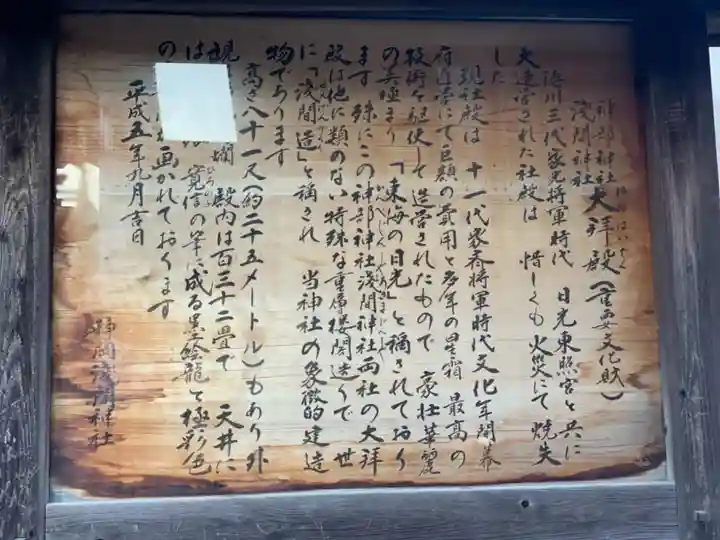 神部神社
浅間神社 大拝殿(重要文化財)
徳川三代家光将軍時代 日光東照宮と共に
大造営された社殿は 惜しくも火災にて焼失
した
現社殿は 十一代家斉将軍時代文化年間幕
府直営にて巨額の費用と多年の星霜 最高の
技術を駆使して造営されたもので 豪壮華麗
の美極まり「東海の日光」と稱されており
ます 殊にこの神部神社浅間神社両社の大拝
殿は他に類のない特殊な重層楼閣造りで 世
に「浅間造」と稱され 当神社の象徴的建造
物であります
高さ八十一尺(約二十五メートル)もあり外
観 殿内は百三十二畳で 天井に
は 寛信の筆に成る墨絵龍と極彩色
の 画かれております
平成五年九月吉日
静岡浅間神社